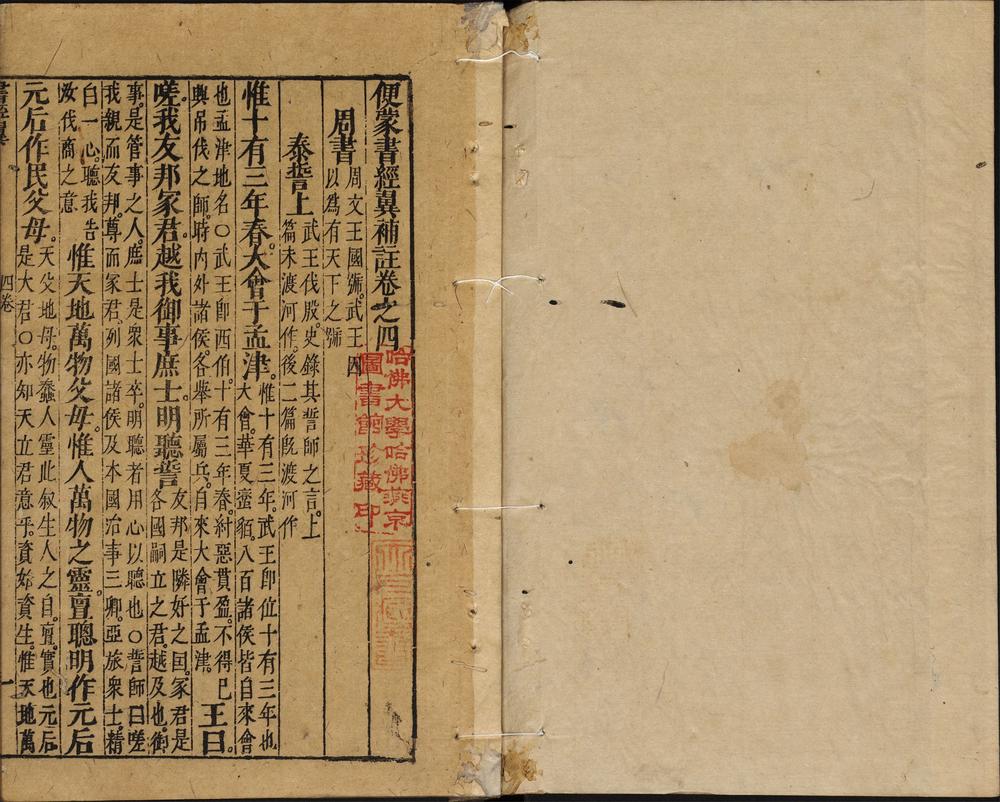 便蒙書經翼補註卷之四
周書
周文王國號。武王因
以爲有天下之號
泰誓上
武王伐殷。史錄其誓師之言。上
篇未渡河作。後二篇旣渡河作
惟十有三年春。大會于孟津。
惟十有三年。武王卽位十有三年也
大會。華夏蠻貊。八百諸侯皆自來會
也孟津地名○武王卽西伯。十有三年春。紂惡貫盈。不得已
興吊伐之師。時內外諸侯。各舉所屬兵。自來大會于孟津。
王曰。
嗟我友邦冢君。越我御事庶士。明聽誓
友邦是隣好之国。冢君是
各國嗣立之君。越及也。御
事。是管事之人。庶士是衆士卒。明聽者用心以聽也○誓師曰嗟
我親而友邦。尊而冢君。列國諸侯及本國治事三卿。亞旅衆士。精
白一心。聽我告
汝伐商之意
惟天地萬物父母。惟人萬物之靈。亶聰明作元后
元后作民父母。
天父地母。物蠢人靈此叙生人之自。亶。實也元后
是大君○亦知天立君意乎。資始資生。惟天地萬
四卷
一
哈佛大學哈佛燕京
圖書館珍藏印